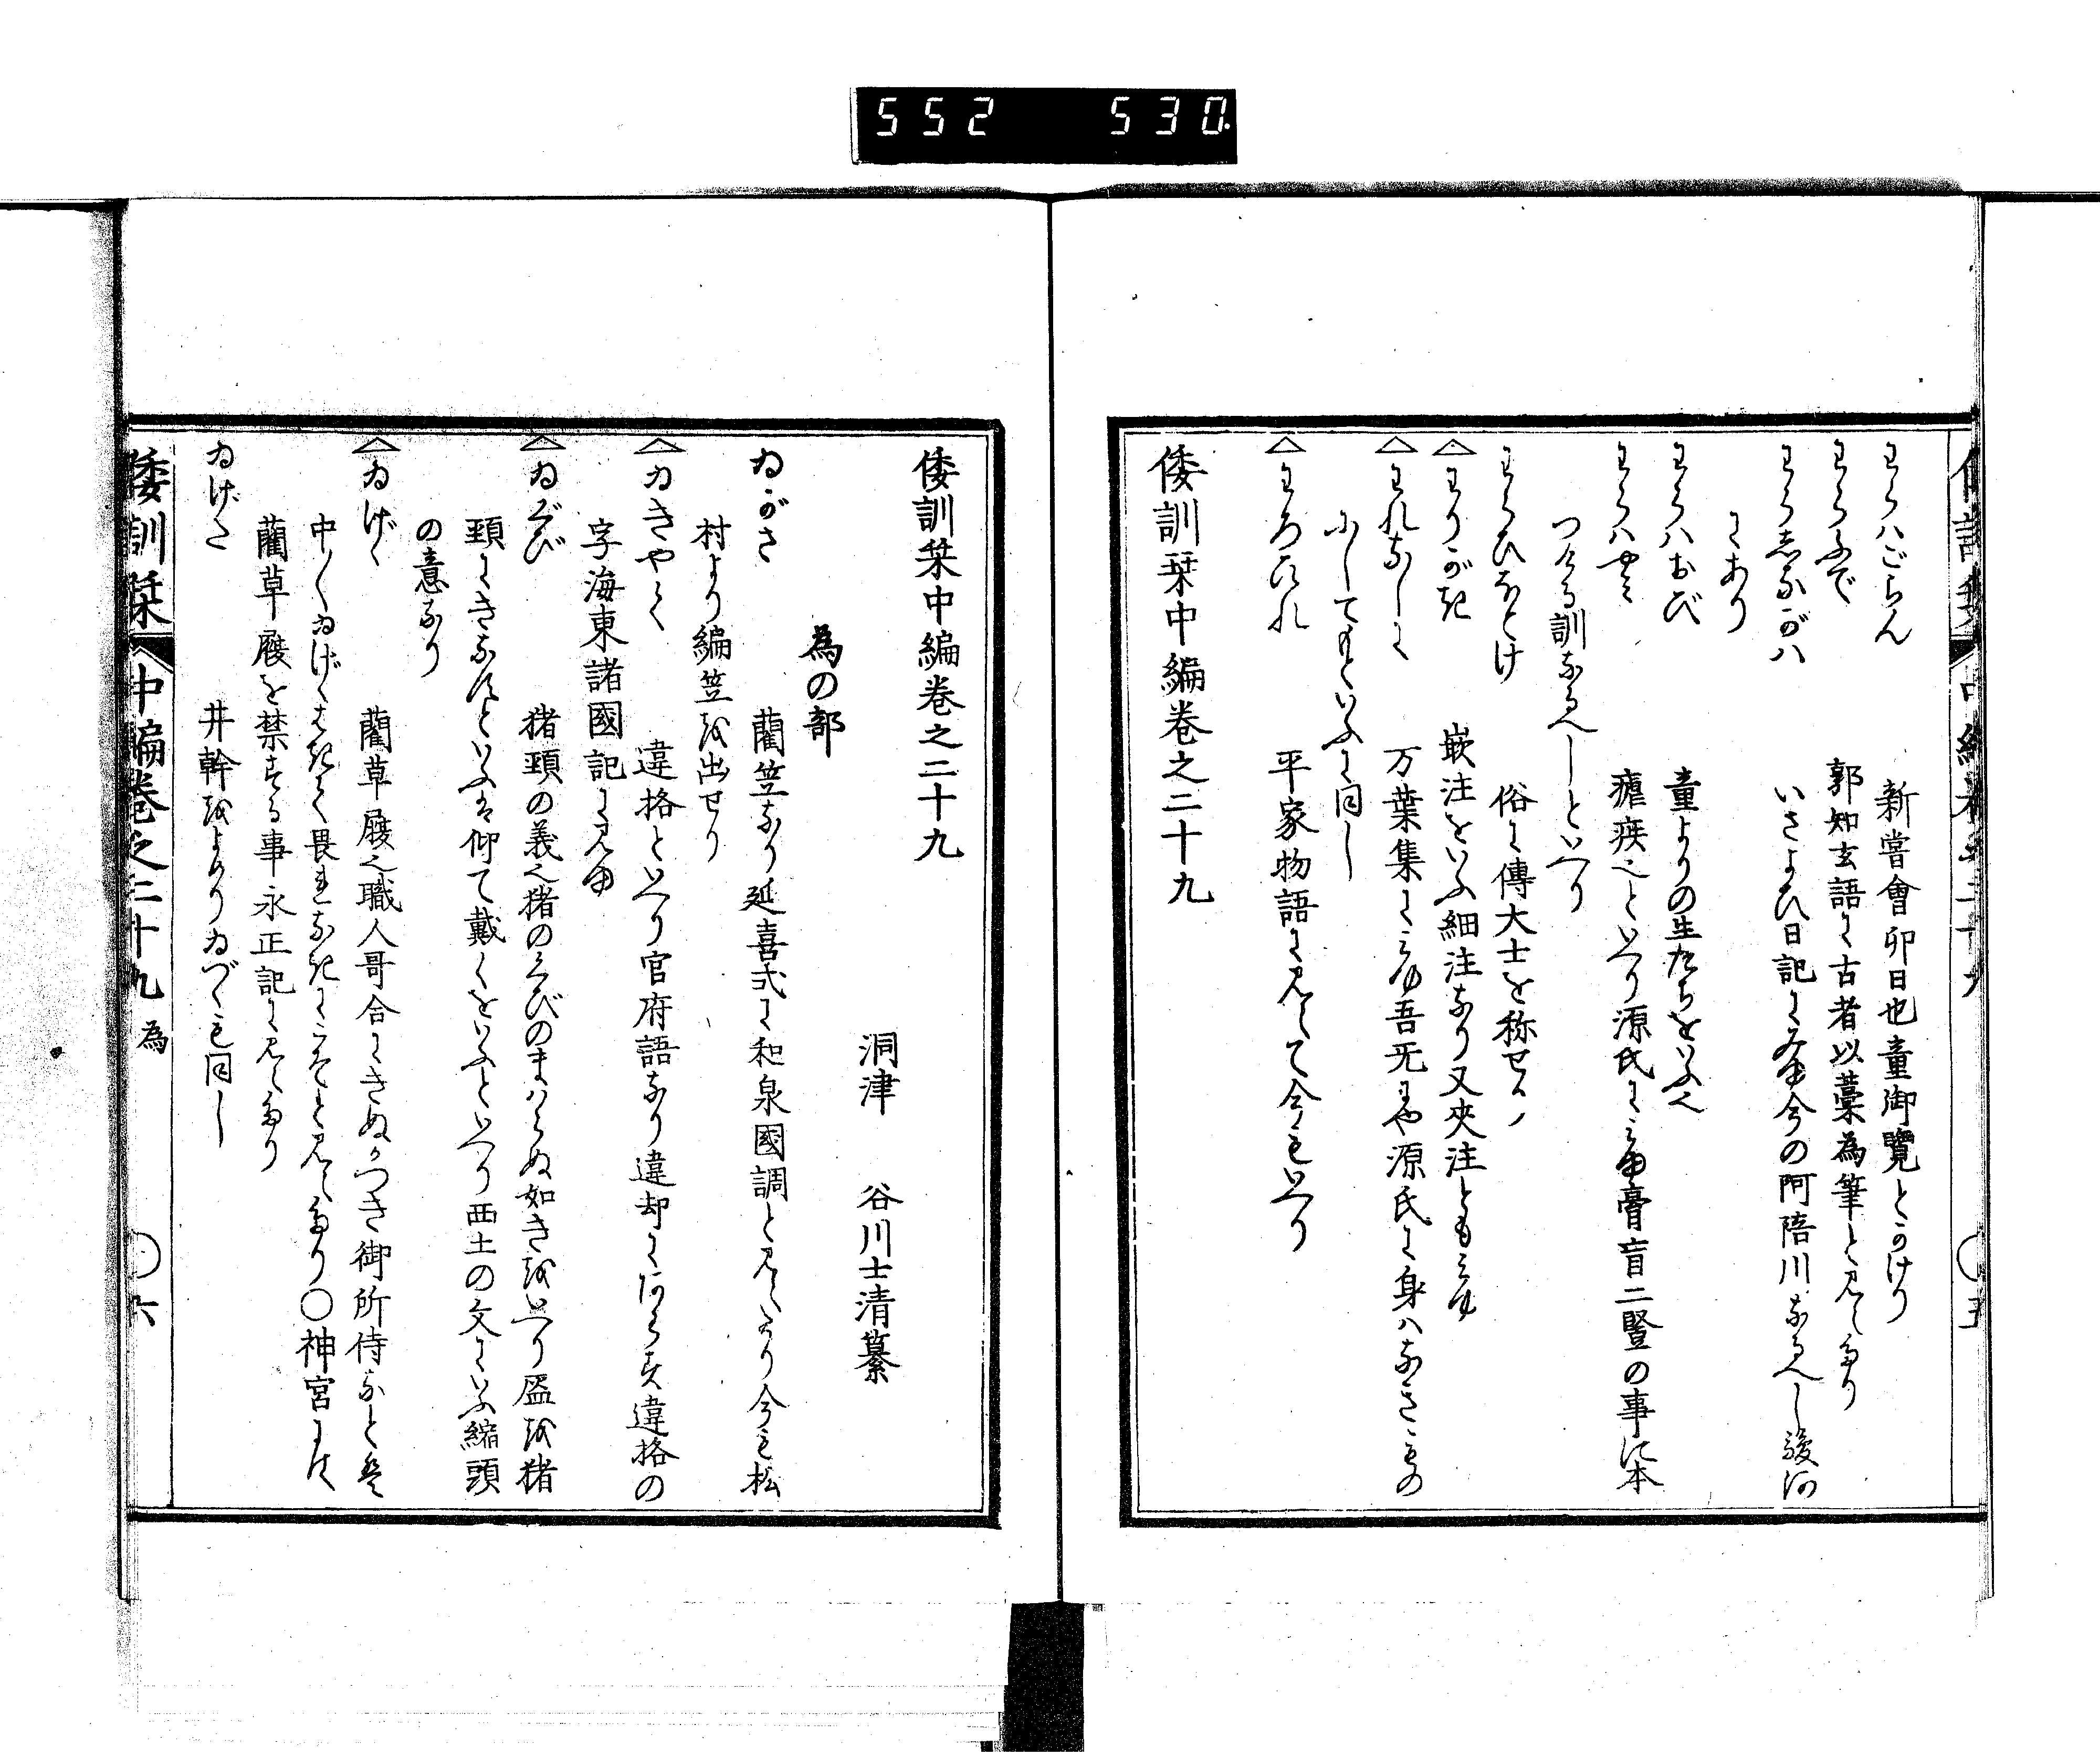 552 530
わらハごらん 新嘗會卯日也童御覽とかけり
わらふで 郭知玄語に古者以藁為筆と見えたり
わらしながハ いさよひ日記にみゆ今の阿陪川なるへし駿河
にあり
わらハおび 童よりの生たちをいふ也
わらハやミ 瘧疾也といへり源氏にミゆ膏肓二豎の事に本
つける訓なるへしといへり
わらひほとけ 俗に傳大士を称せり
わりがき 嵌注をいふ細注なり又夾注ともミゆ
われなしに 万葉集にミゆ吾无にや源氏に身ハなきもの
にしてもといふに同し
平家物語に見えて今もいへり
倭訓栞中編卷之二十九
倭訓栞中編卷之二十九
洞津 谷川士清纂
為の部
ゐがさ 藺笠なり延喜式に和泉國調と見えたり今も松
村より編笠を出せり
ゐきやく 違格といへり官府語なり違却にハあらす違格の
字海東諸國記に見ゆ
ゐくび 猪頸の義也猪のくびのまハらぬ如きをいへり盔を猪
頸にきなすといふは仰て戴くをいふといへり西土の文にいふ縮頭
の意なり
ゐげゝ 藺草履也職人哥合にきぬかつき御所侍なと此
中〱ゐげゝはきて畏れなきにこそと見えたり〇神宮にて
藺草履を禁する事永正記に見えたり
ゐげた 井幹をよめりゐづゝも同し
倭訓栞 中編卷之二十九 為 〇六